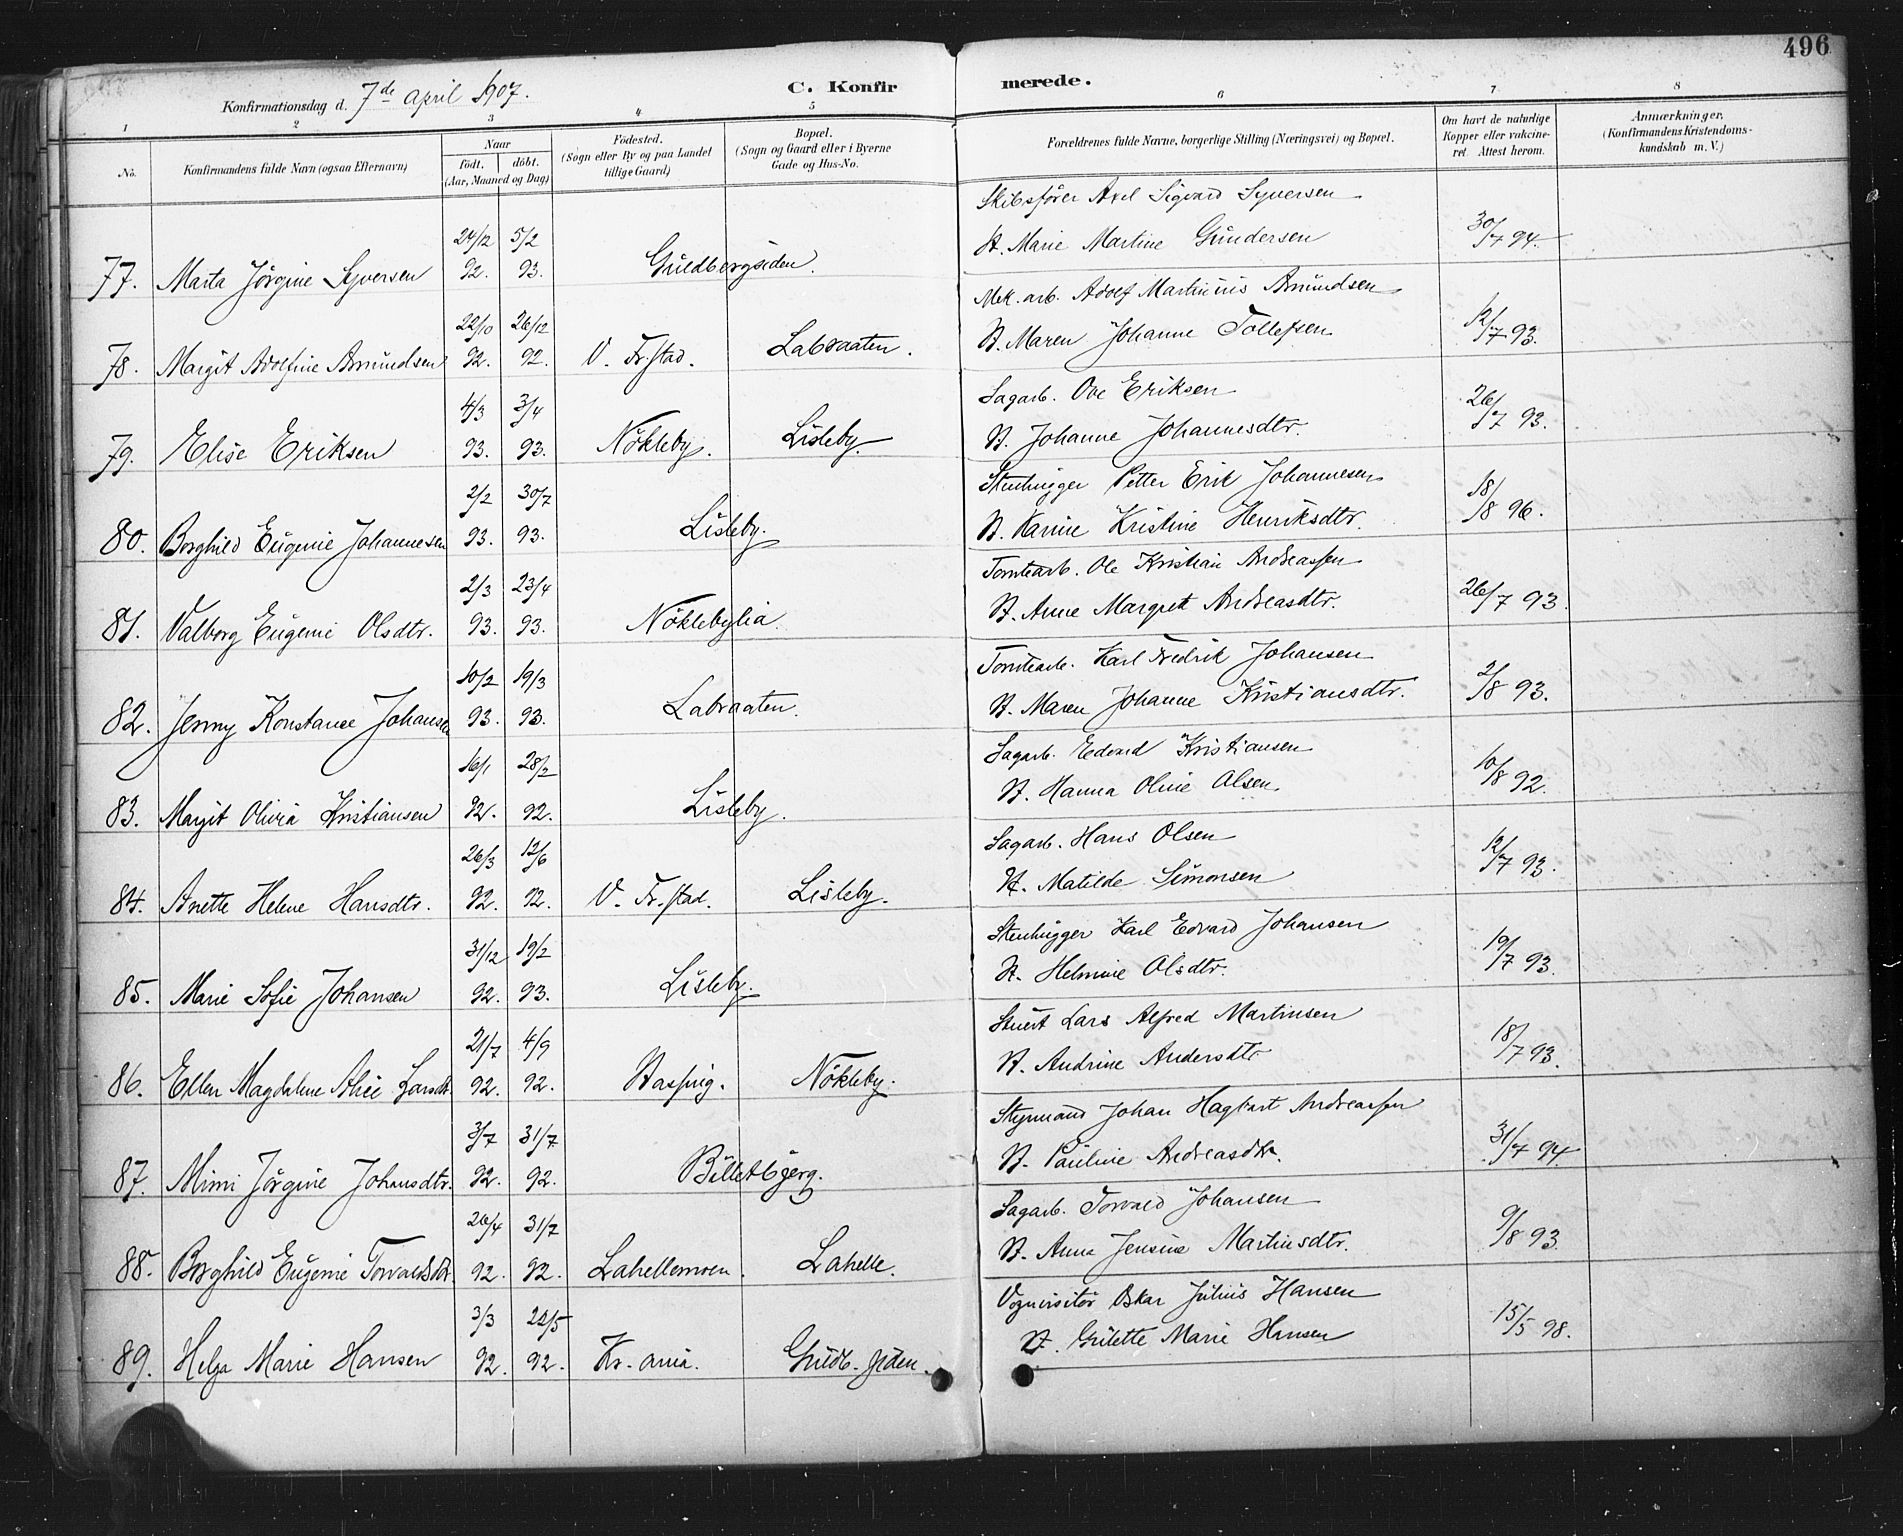 496
Konfirmationsdag d. 7de april 1907. C. Konfirmerede.
1 2 3 4 5 6 7 8
No. Konfirmandens fulde Navn (ogsaa Efternavn) Naar født, døbt. (Aar, Maaned og Dag) Fødested. (Sogn eller By og paa Landet tillige Gaard) Bopæl. (Sogn og Gaard eller i Byerne Gade og Hus-No. Forældrenes fulde Navne, borgerlige Stilling (Næringsvei) og Bopæl. Om havt de naturlige Kopper eller vakcineret. Attest herom. Anmærkninger. (Konfirmandens Kristendomskundskab m. V.)
Skibsfører Axel Sigvard Syversen
77. Marta Jörgine Syversen 24/12 92. 5/2 93. Guldbergsiden. H. Marie Martine Gundersen 30/7 94
Mek. arb. Adolf Martinius Amundsen
78. Margit Adolfine Amundsen 22/10 92. 26/12 92. V. Fr.stad. Labraaten. H. Maren Johanne Tollefsen 12/7 93.
Sagarb. Ove Eriksen
79. Elise Eriksen 4/3 93. 3/4 93. Nökleby. Lisleby. H. Johanne Johannesdtr. 26/7 93.
Stenhugger Petter Erik Johannesen
80. Borghild Eugenie Johannesen 2/2 93. 30/7 93. Lisleby. H. Karine Kristine Henriksdtr. 18/8 96.
Tomtearb. Ole Kristian Andreassen
81. Valborg Eugenie Olsdtr. 2/3 93. 23/4 93. Nöklebylia. H. Anne Margret Andreasdtr. 26/7 93.
Tomtearb. Karl Fredrik Johansen
82. Jenny Konstanse Johansen 10/2 93. 19/3 93. Labraaten. H. Maren Johanne Kristiansdtr. 2/8 93.
Sagarb. Edvard Kristiansen
83. Margit Olivia Kristiansen 16/1 92. 28/2 92. Lisleby. H. Hanna Oline Olsen. 10/8 92.
Sagarb. Hans Olsen
84. Anette Helene Hansdtr. 26/3 92. 12/6 92. V. Fr.stad. Lisleby. H. Matilde Simonsen 12/7 93.
Stenhugger Karl Edvard Johansen
85. Marie Sofie Johansen 31/12 92. 19/2 93. Lisleby. H. Helmine Olsdtr. 19/7 93.
Stuert Lars Alfred Martinsen
86. Ellen Magdalene Alice Larsdtr. 21/7 92. 4/9 92. Nökleby. H. Andrine Andersdtr 18/7 93.
Styrmand Johan Hagbart Andreassen
87. Mimi Jörgine Johansdtr. 3/7 92. 31/7 92. Billetbjerg. H. Pauline Andreasdtr. 31/7 94
Sagarb. Torvald Johansen
88. Borghild Eugenie Torvaldsdtr. 26/4 92. 31/7 92. Lahellemoen. Lahelle. H. Anna Jensine Martinsdtr. 9/8 93
Vognvisitör Oskar Julius Hansen
89. Helga Marie Hansen 3/3 92. 22/5 92. Kr. ania. Guldb. siden. H. Gulette Marie Hansen 15/5 98.